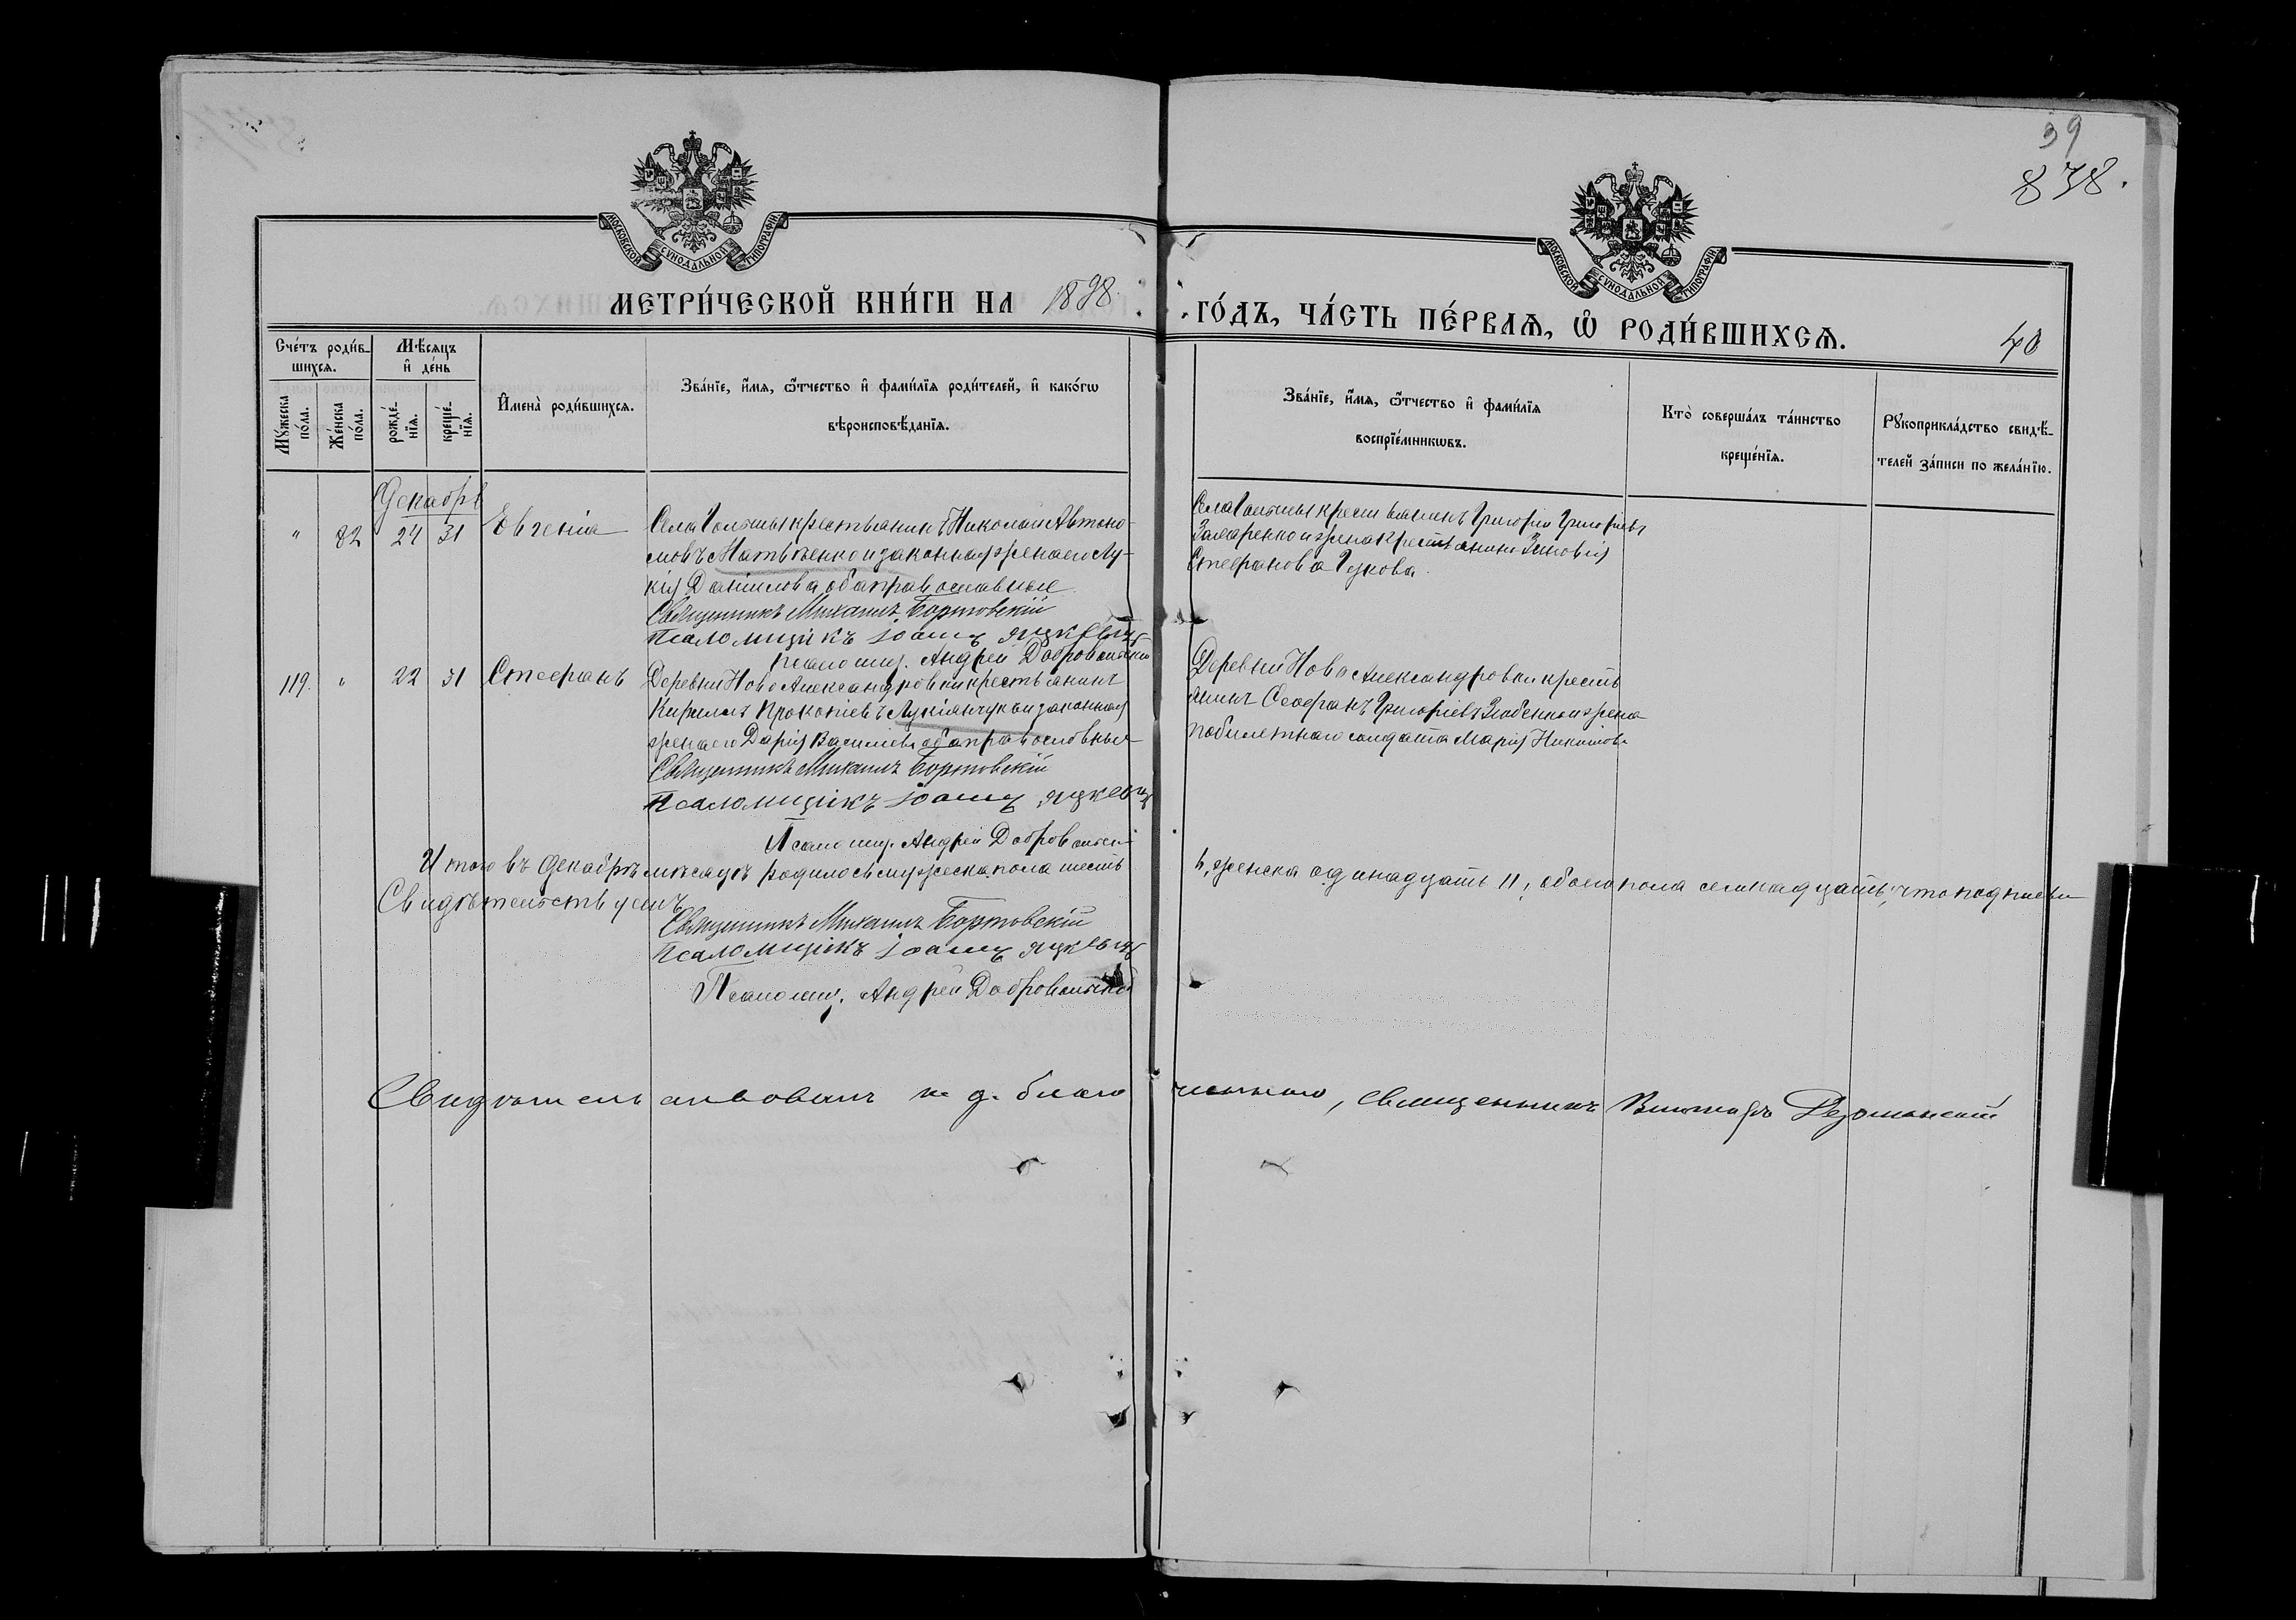 39
838.
МОСКОВСКОЙ СѴНОДАЛЬНОЙ ТИПОГРАФІИ
МОСКОВСКОЙ СѴНОДАЛЬНОЙ ТИПОГРАФІИ
МЕТРИ́ЧЕСКОЙ КНИ́ГИ НА 1898.
ГО́ДЪ, ЧА́СТЬ ПЕ́РВАѦ, Ѽ РОДИ́ВШИХСѦ.
40
Сче́тъ роди́в-
шихсѧ.
Мѣ́сѧцъ
и҆ де́нь
Мꙋ́жеска
по́ла.
Же́нска
по́ла.
рожде́-
нїѧ.
креще́-
нїѧ.
И҆мена̀ роди́вшихсѧ.
Зва́нїе, и҆́мѧ, ѻ҆́тчество и҆ фами́лїѧ роди́телей, и҆ како́гѡ
вѣроисповѣ́данїѧ.
Зва́нїе, и҆́мѧ, ѻ҆́тчество и҆ фами́лїѧ
воспрїе́мникѡвъ.
Кто̀ соверша́лъ та́инство
креще́нїѧ.
Рꙋкоприкла́дство свидѣ́-
телей за́писи по жела́нїю.
Декабрь
" 82 24 31 Евгенія
Села крестьянинъ Николай Автоно-
мовъ Матвѣенко и законная жена его Лу-
кія Данилова оба православные
Священникъ Михаилъ Бортовскій
Псаломщикъ Іоаннъ Яцкевичъ
Псаломщ. Андрей Добровольскій
Села крестьянинъ Григорій Григорьевъ
и жена крестьянина Зиновія
Стефанова
119. " 22 31 Стефанъ
Деревни Ново Александровки крестьянинъ
Кириллъ Прокопіевъ Лукіянчукъ и законная
жена его Дарія Васильева оба православные
Священникъ Михаилъ Бортовскій
Псаломщикъ Іоаннъ Яцкевичъ
Псаломщ. Андрей Добровольскій
Деревни Ново Александровки кресть
янинъ Феофанъ Григоріевъ и жена
побилетнаго солдата Марія
Итого въ Декабрѣ мѣсяцѣ родилось мужеска пола шесть
6, женска одинадцать 11, обоего пола семнадцать, что подписью
Свидѣтельствуемъ
Священникъ Михаилъ Бортовскій
Псаломщикъ Іоаннъ Яцкевичъ
Псаломщ. Андрей Добровольскій
Свидѣтельствовалъ и. д. благочиннаго, священникъ